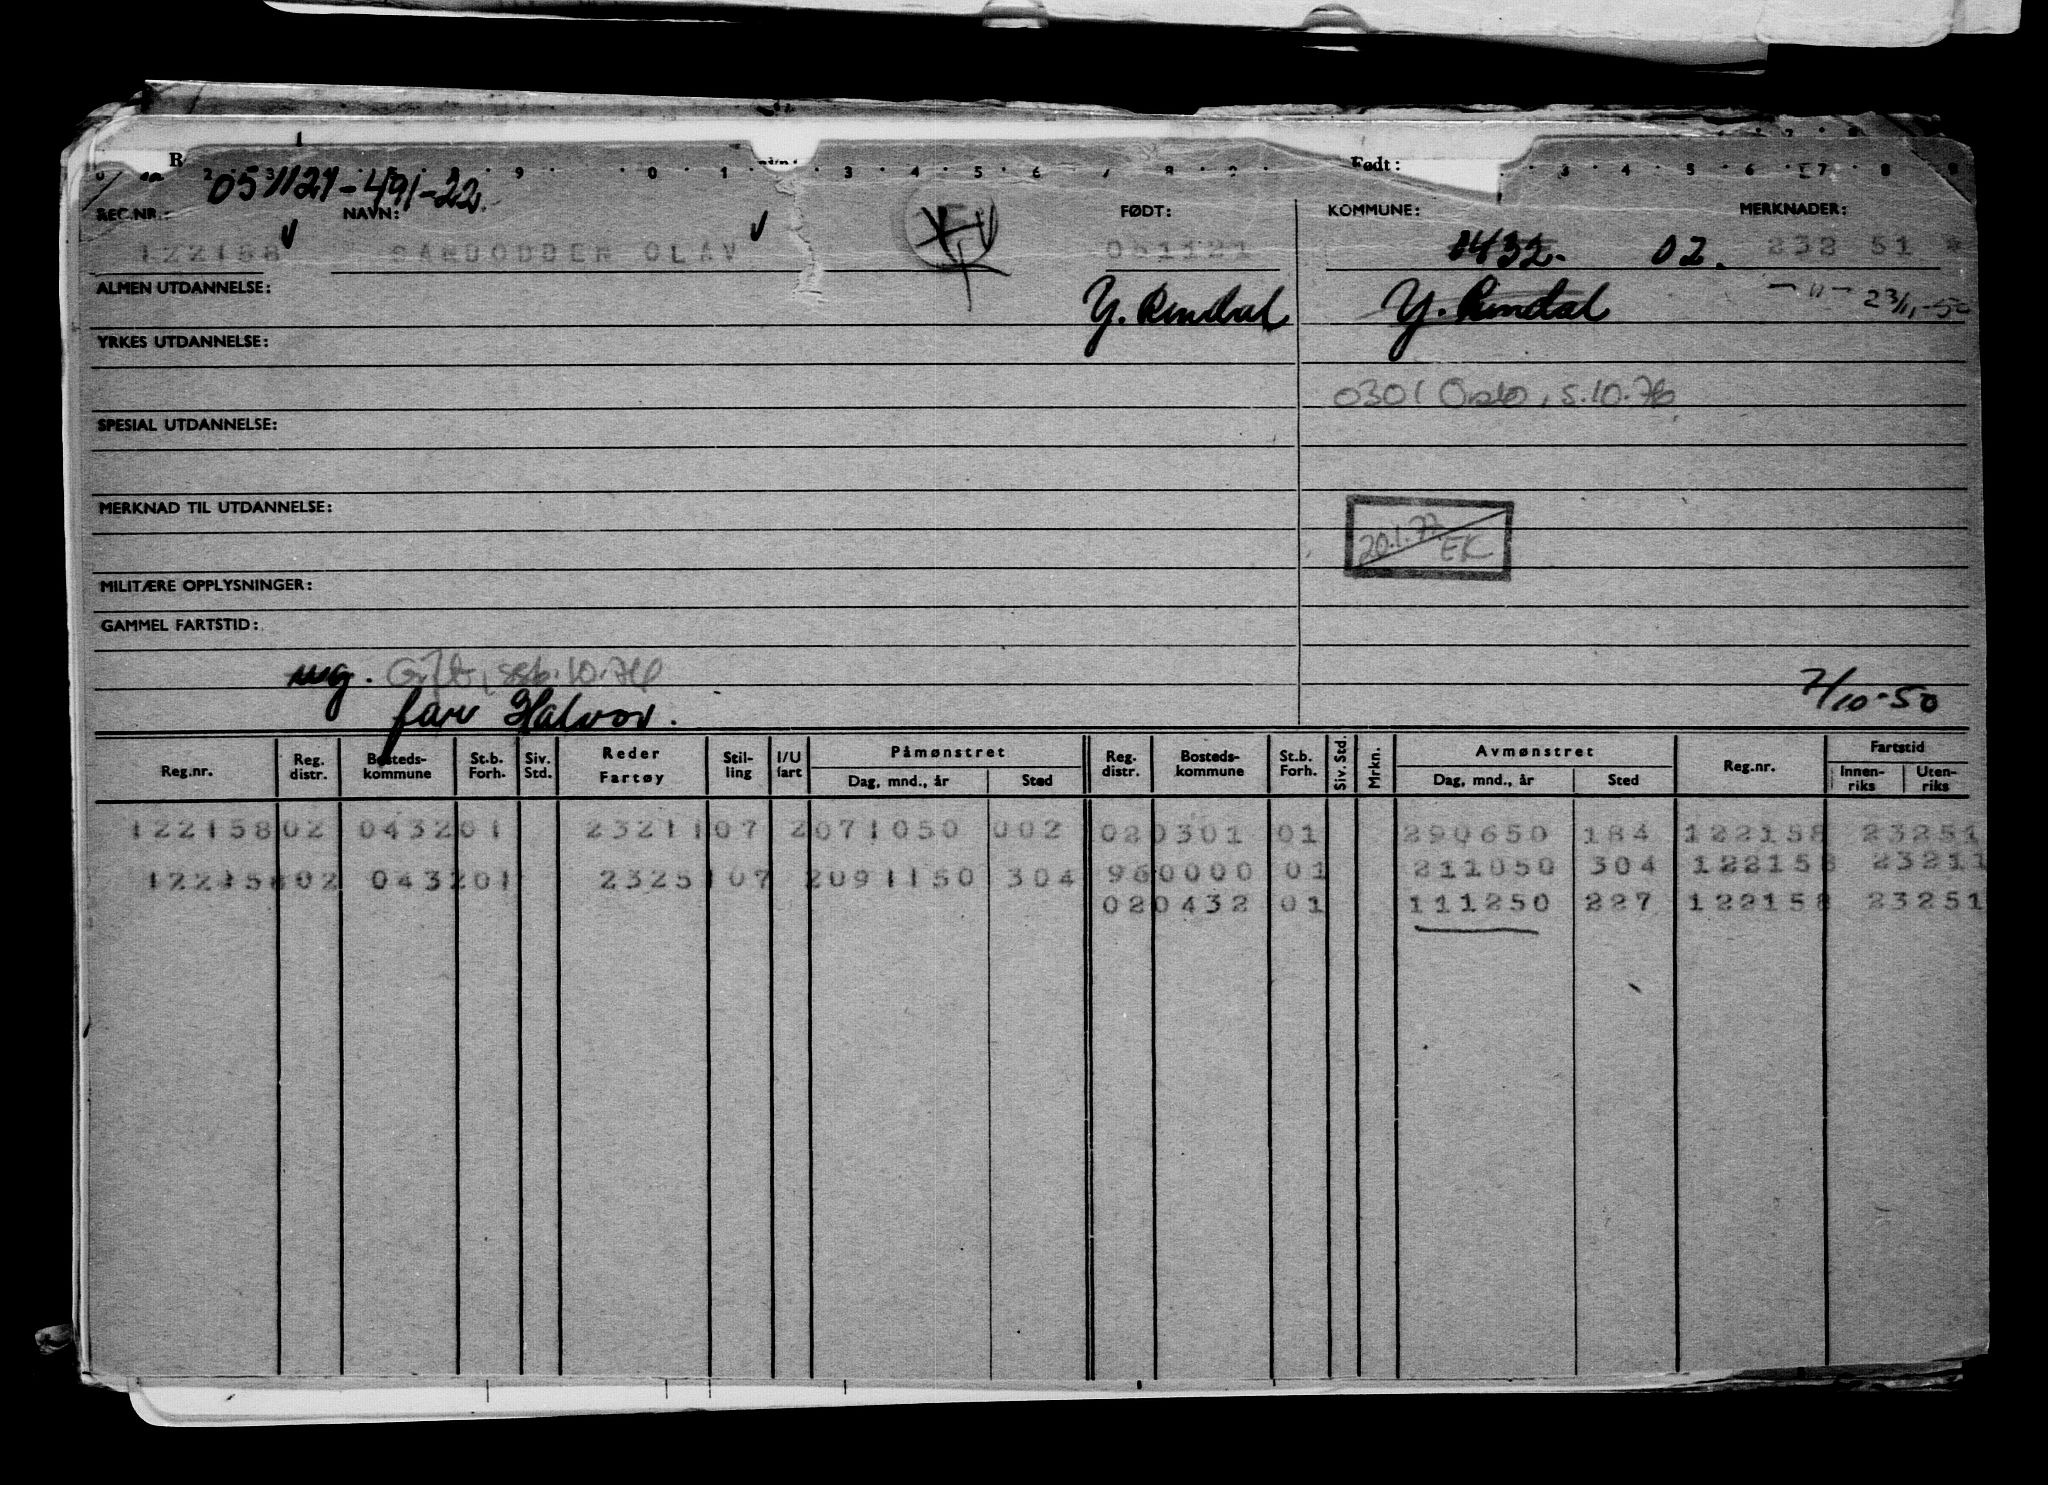 R Født:
051121-491-22.
REG.NR.: NAVN: FØDT: KOMMUNE: MERKNADER:
122158 OLAV 051121 0432. 02. 232 51 *
ALMEN UTDANNELSE: Y. Rendal Y. Rendal — " — 23/11-50
YRKES UTDANNELSE:
0301 Oslo, s.10.76
SPESIAL UTDANNELSE:
MERKNAD TIL UTDANNELSE:
20.1.77 EK
MILITÆRE OPPLYSNINGER:
GAMMEL FARTSTID:
ug. Gift, 10.76
far Halvor. 7/10-50
Reg.nr. Reg. distr. Bosteds-kommune St.b. Forh. Siv. Std. Reder Fartøy Stil-ling I/U fart Påmønstret Dag, mnd., år Sted Reg. distr. Bosteds-kommune St.b. Forh. Siv. Std. Mrkn. Avmønstret Dag, mnd., år Sted Reg.nr. Fartstid Innen-riks Uten-riks
122158 02 0432 01 23211 07 2 071050 002 02 0301 01 290650 184 122158 23251
96 0000 01 211050 304 122158 23211
122158 02 0432 01 23251 07 2 091150 304
02 0432 01 111250 227 122158 23251